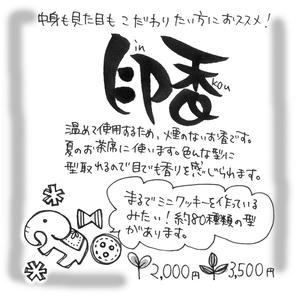 中身も見た目もこだわりたい方におススメ!
in
印香
kou
温めて使用するため、煙のないお香です。
夏のお茶席に使います。色んな型に
型取れるので目でも香りを感じられます。
まるでミニクッキーを作っている
みたい!約80種類の型
があります。
2,000円 3,500円